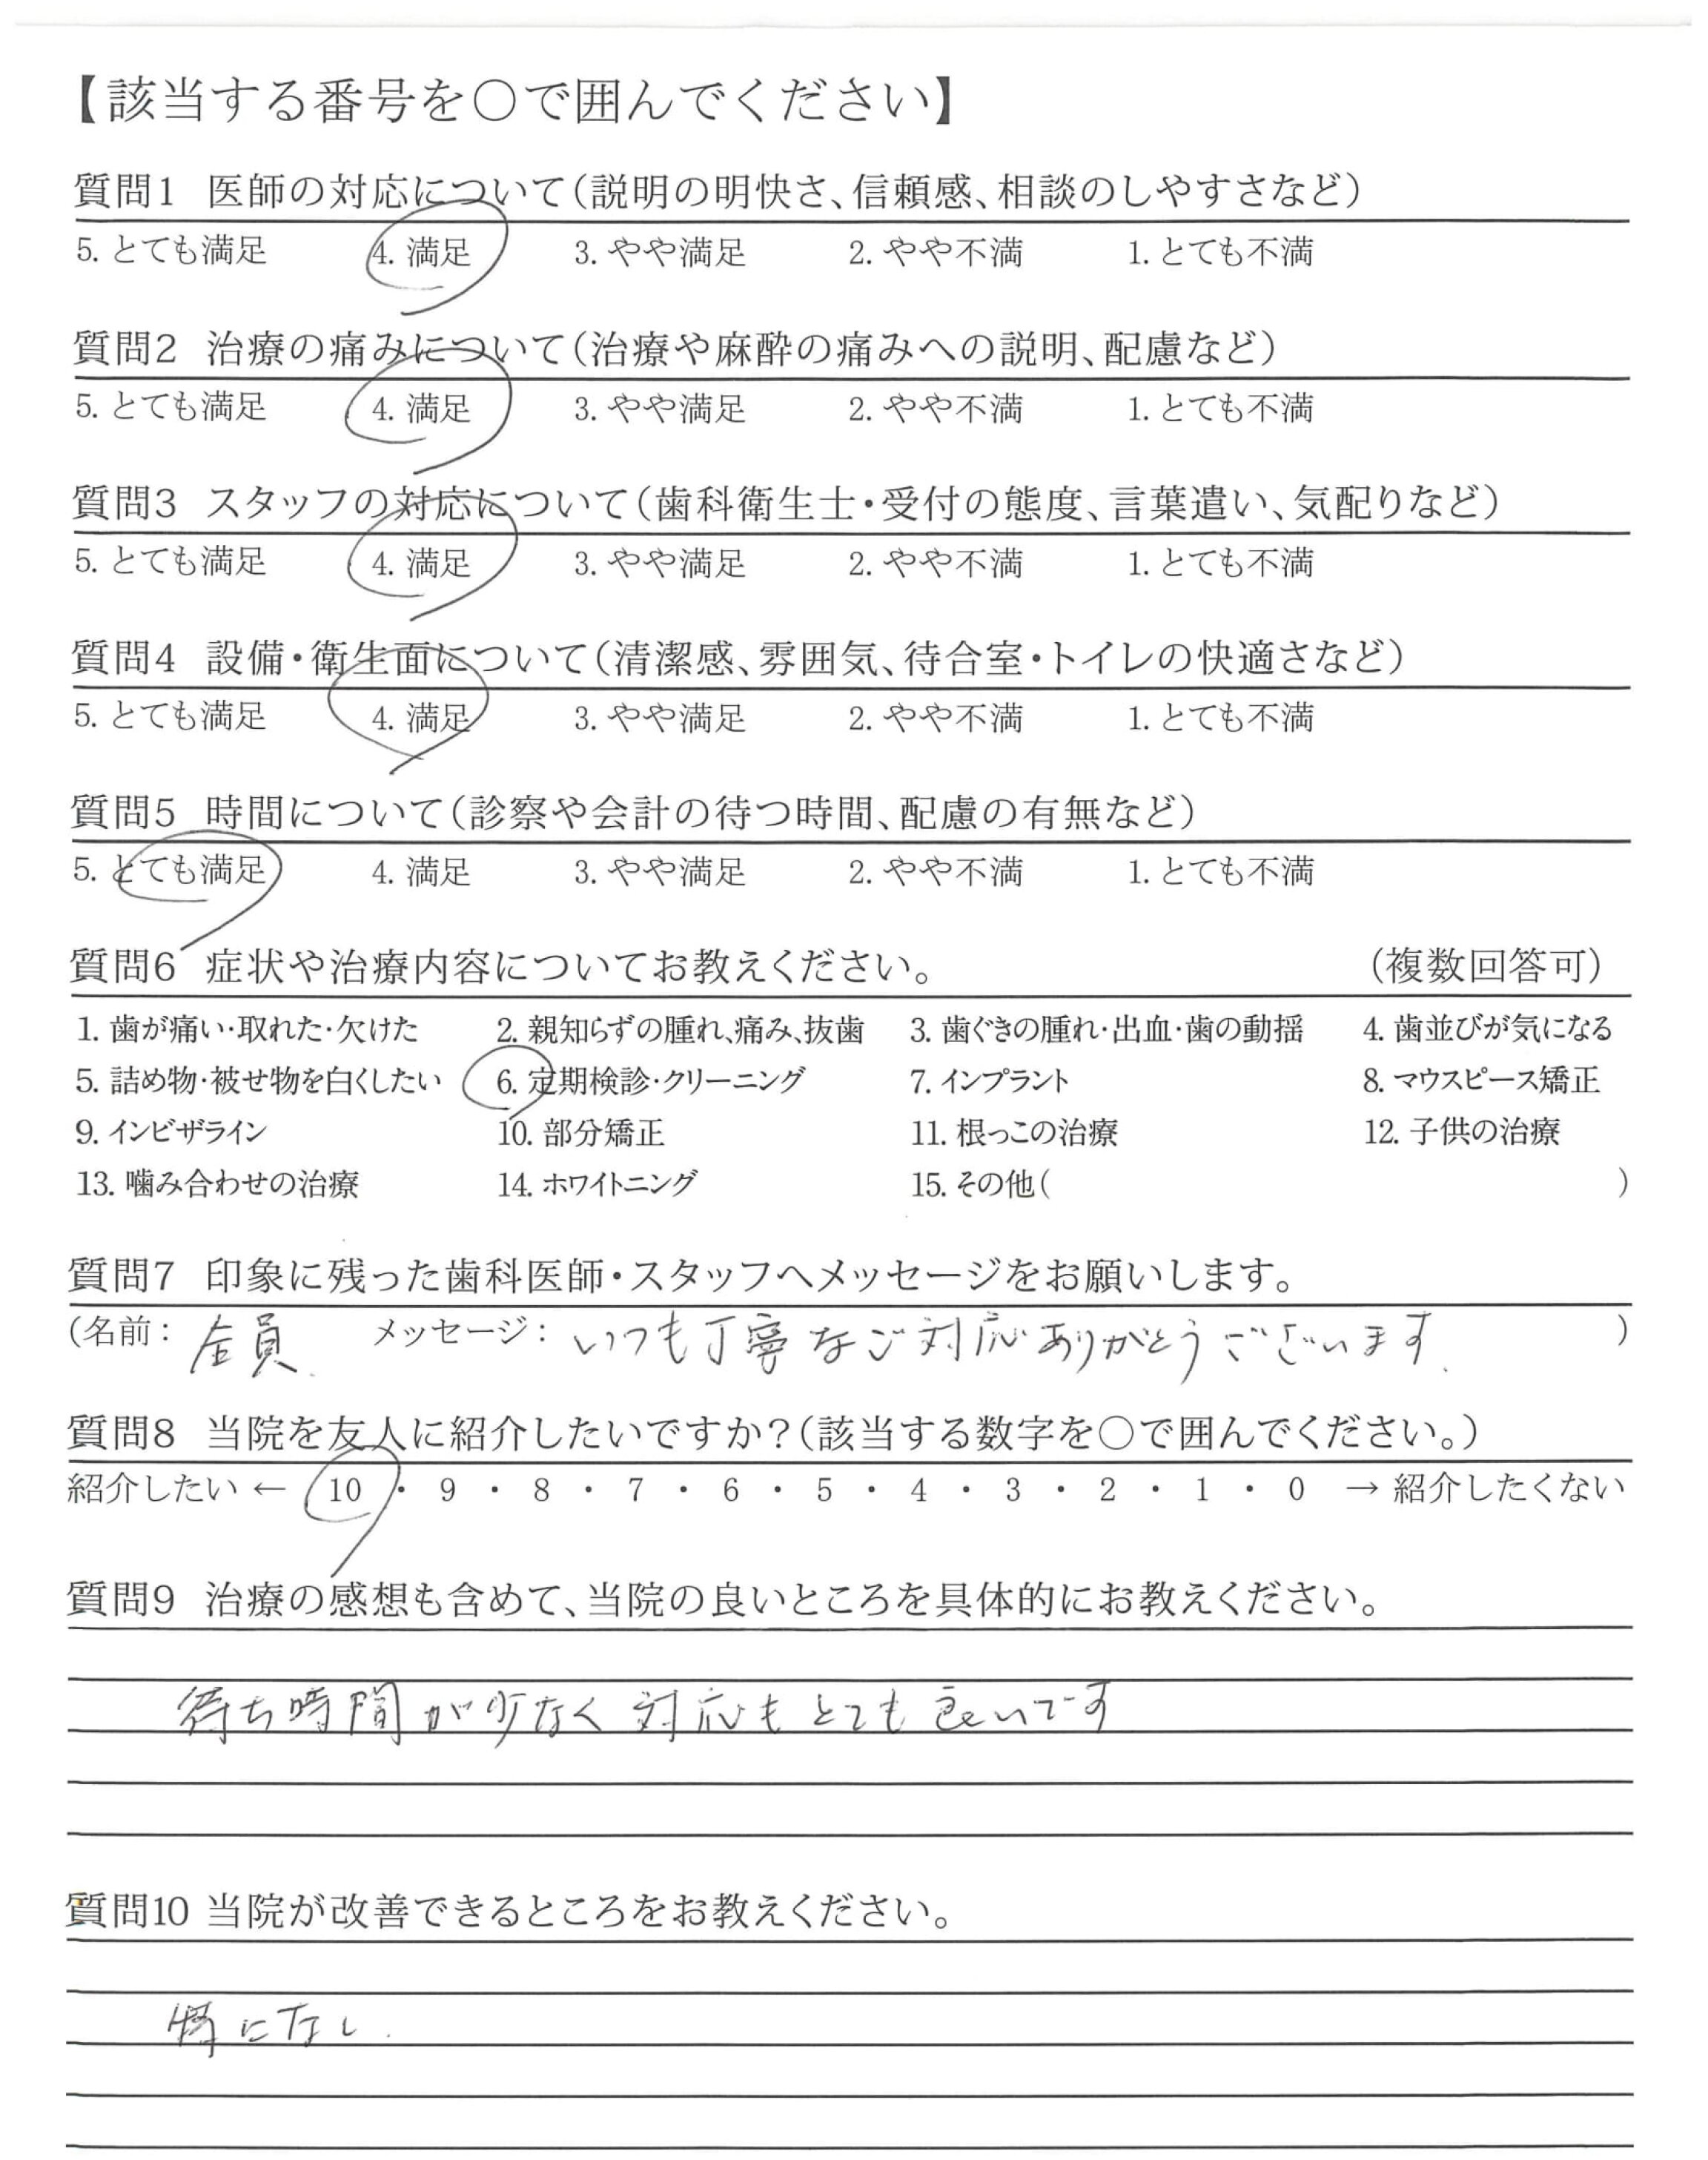 【該当する番号を○で囲んでください】
質問1 医師の対応について(説明の明快さ、信頼感、相談のしやすさなど)
5. とても満足 4. 満足 3. やや満足 2. やや不満 1. とても不満
質問2 治療の痛みについて(治療や麻酔の痛みへの説明、配慮など)
5. とても満足 4. 満足 3. やや満足 2. やや不満 1. とても不満
質問3 スタッフの対応について(歯科衛生士・受付の態度、言葉遣い、気配りなど)
5. とても満足 4. 満足 3. やや満足 2. やや不満 1. とても不満
質問4 設備・衛生面について(清潔感、雰囲気、待合室・トイレの快適さなど)
5. とても満足 4. 満足 3. やや満足 2. やや不満 1. とても不満
質問5 時間について(診察や会計の待つ時間、配慮の有無など)
5. とても満足 4. 満足 3. やや満足 2. やや不満 1. とても不満
質問6 症状や治療内容についてお教えください。 (複数回答可)
1. 歯が痛い・取れた・欠けた 2. 親知らずの腫れ、痛み、抜歯 3. 歯ぐきの腫れ・出血・歯の動揺 4. 歯並びが気になる
5. 詰め物・被せ物を白くしたい 6. 定期検診・クリーニング 7. インプラント 8. マウスピース矯正
9. インビザライン 10. 部分矯正 11. 根っこの治療 12. 子供の治療
13. 噛み合わせの治療 14. ホワイトニング 15. その他( )
質問7 印象に残った歯科医師・スタッフへメッセージをお願いします。
(名前: 全員. メッセージ: いつも丁寧なご対応ありがとうございます. )
質問8 当院を友人に紹介したいですか?(該当する数字を○で囲んでください。)
紹介したい ← 10 ・ 9 ・ 8 ・ 7 ・ 6 ・ 5 ・ 4 ・ 3 ・ 2 ・ 1 ・ 0 → 紹介したくない
質問9 治療の感想も含めて、当院の良いところを具体的にお教えください。
待ち時間が少なく対応もとても良いです
質問10 当院が改善できるところをお教えください。
特になし.